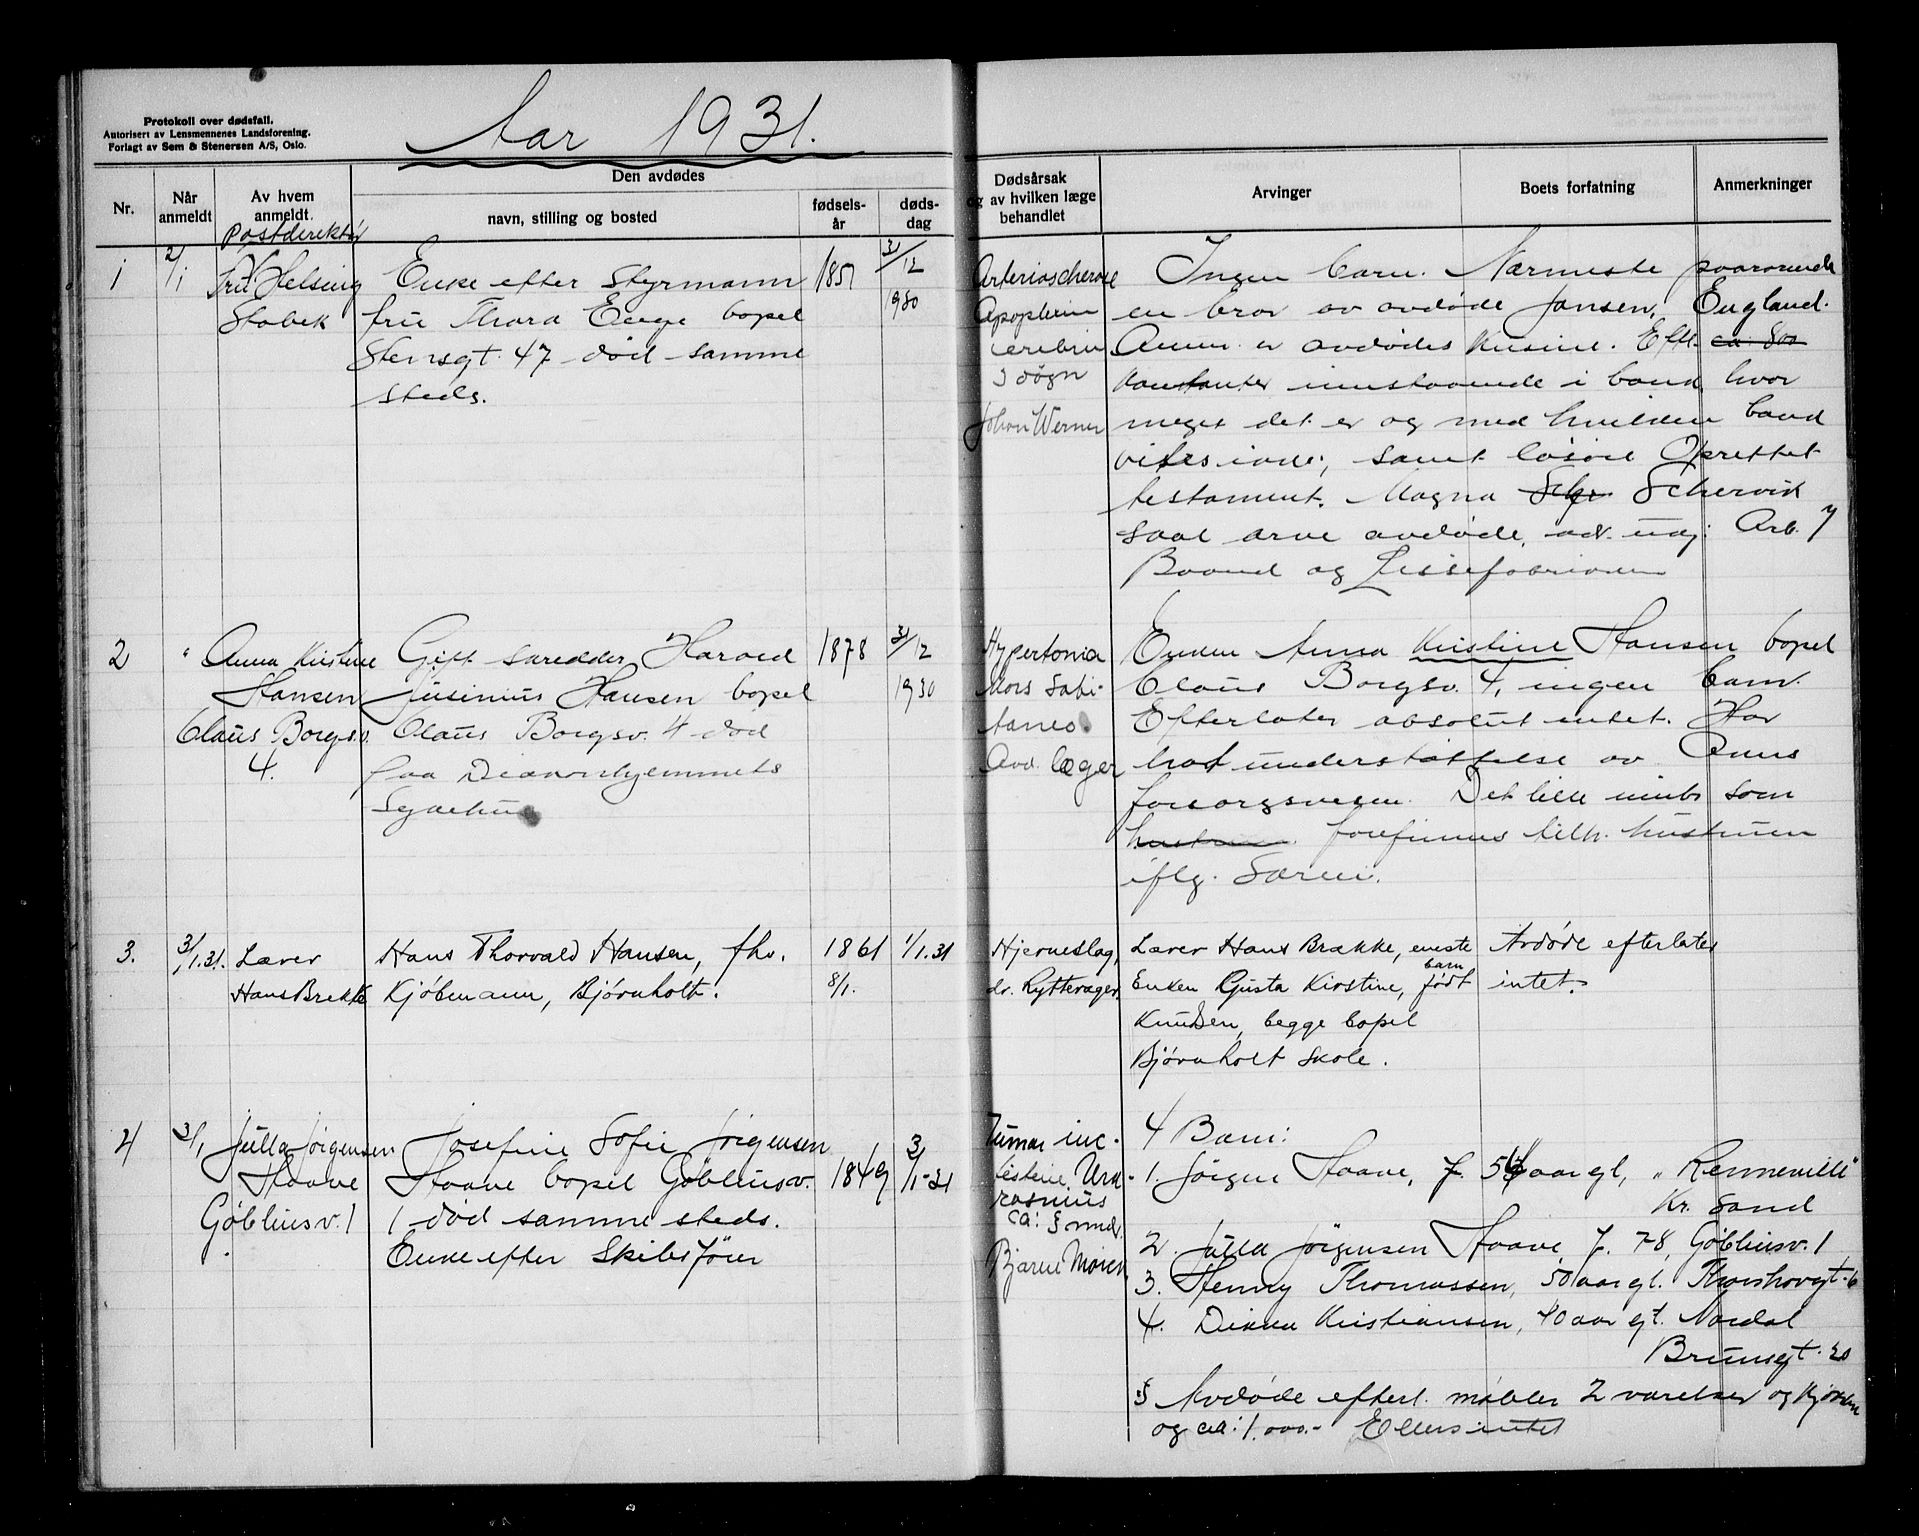 Protokoll over dødsfall.
Autorisert av Lensmennenes Landsforening.
Forlagt av Sem & Stenersen A/S, Oslo.
Aar 1931.
Nr.
Når anmeldt
Av hvem anmeldt.
Den avdødes
navn, stilling og bosted
fødsels-år
døds-dag
Dødsårsak og av hvilken læge behandlet
Arvinger
Boets forfatning
Anmerkninger
1
2/1
Postdirektør
Fru Helsing
Stabek
Enke efter Styrmann
fru Thora Enge bopel
Stensgt. 47 død samme
steds.
1851
31/12
1930
Apoplexia
cerebri
3 døgn
Johan Werner
Ingen barn. Nærmeste paarørende
en bror av avdøde Jansen, England.
Anm. er avdødes kusine. Eftl. ca 800
kontanter innstaaende i bank, hvor
meget det er og med hvilken bank
vites ikke, samt løsøre Oprettet
testament. Magna Schervik
skal arve avdøde, adr. Arb.
Baand og Lissefabrikken
2
"
Anna Kristine
Hansen
Claus Borgsv.
4.
Gift Harald
Jusinius Hansen bopel
Claus Borgsv. 4 død
paa Diakonhjemmets
Sykehus
1878
31/12
1930
Hypertonia
Mors Subi-
tanea
Avd. læger
Enken Anna Kristine Hansen bopel
Claus Borgsv. 4, ingen barn.
Efterlater absolut intet. Har
hat understøttelse av Akers
forsorgsvesen. Det lille innbo som
hustruen forefinnes tilh. hustruen
iflg. Særeie.
3.
3/1.31.
Lærer
Hans Brekke
Hans Thorvald Hansen, fhv.
Kjøbmann, Bjørnholt.
1861
8/1.
1/1.31
Hjerneslag,
dr. Rytterager.
Lærer Hans Brække, eneste
barn
Enken Gusta Kirstine, født
Knudsen, begge bopel
Bjørnholt Skole.
Avdøde efterlater
intet.
4
3/1
Julla Jørgensen
Haave
Gøbliusv. 1
Josefine Sofie Jørgensen
Haave bopel Gøbliusv.
1 død samme steds.
Enke efter Skibsfører
1849
3/1-31
Tumor in-
testine,
ca: 3 mnd.
Bjarne
4 Barn:
1. Jørgen Haave, f. 54 aar gl, "Rennemille"
Kr. Sand
2. Julla Jørgensen Haave, f. 78, Gøbliusv. 1
3. Henny Thomassen, 50 aar gl. Thorshovgt. 6
4. Dikka Kristiansen, 40 aar gl. Nordal
Brunsgt. 20
§ Avdøde efterl. møbler 2 værelser og kjøkken
og ca: 1.000.- Ellers intet